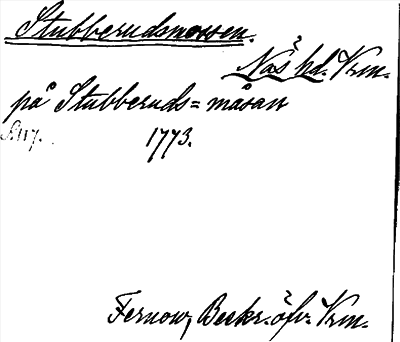 Stubberudsmossen.
Näs hd. Vrm.
på Stubberuds=måsan
S. 117. 1773.
Fernow, Beskr. öfv. Vrm.